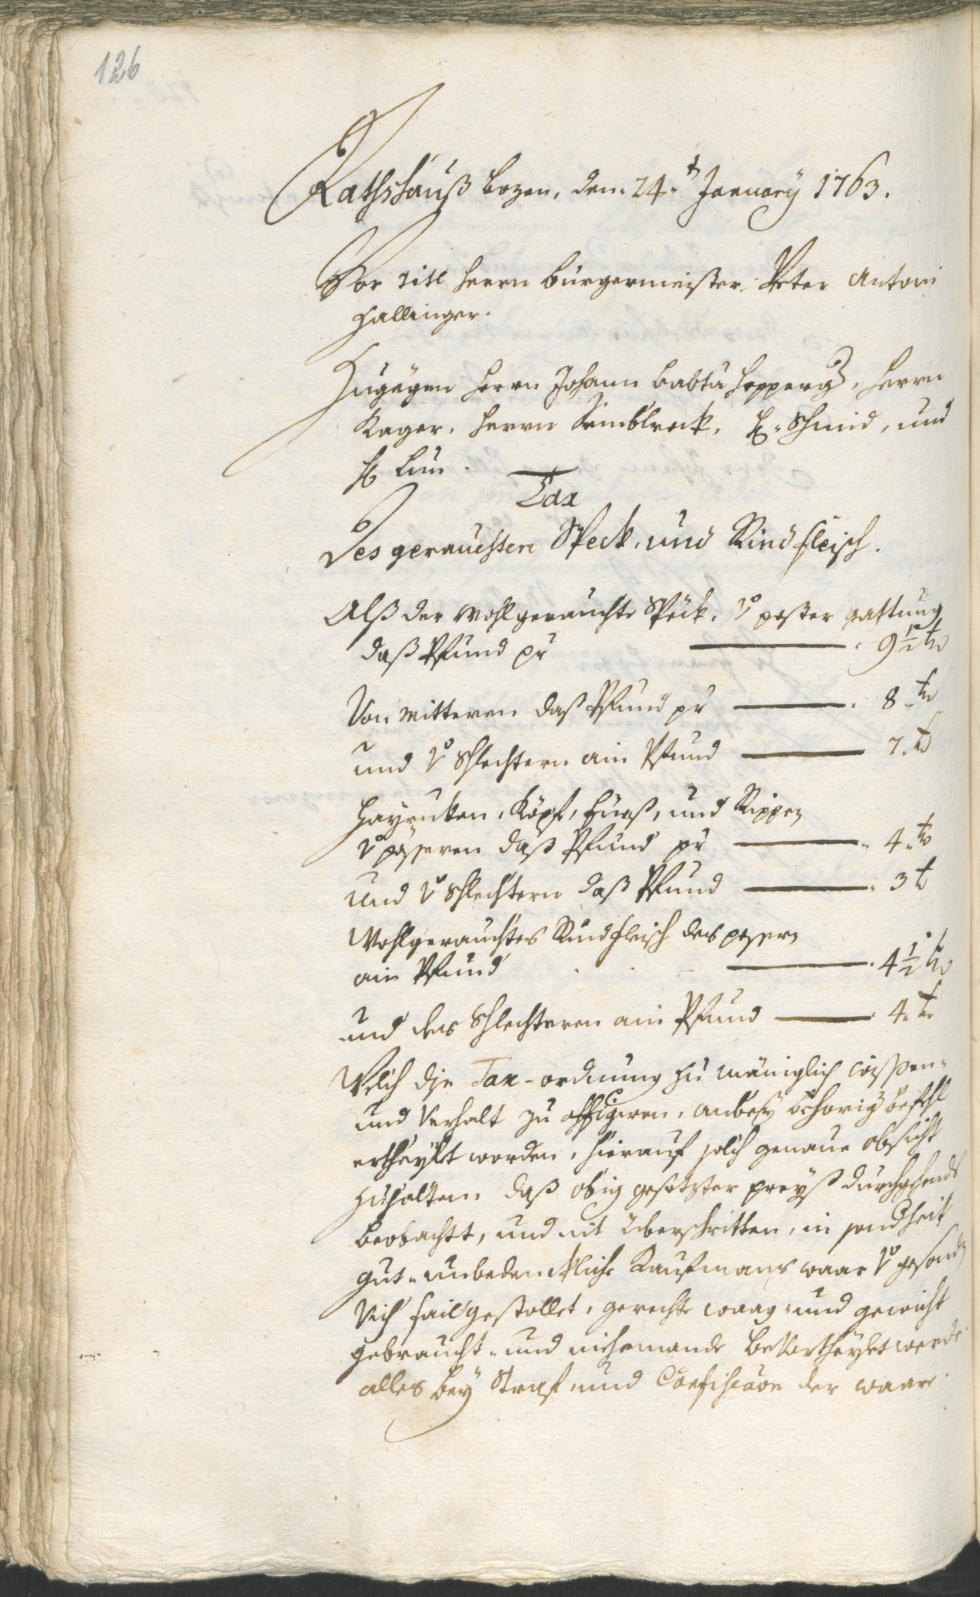 126
Rathshauß Bozen, den 24.t January 1763.
Vor Titl Herrn Burgermeister Peter Antoni
Hallinger.
Zugegen Herrn Johann Babta Hepperg, Herrn
Kager, Herrn, H: Schmid, und
H:
Tax
Des gerauchten Speck, und Rindfleisch.
Alß der wohlgerauchte Speck, vo pester gattung
daß Pfund pr 9½ kr
Von mitteren daß Pfund pr 8 kr
und vo schlechtern ain Pfund 7 kr
Köpf, Füeß, und Rippen
vo pesseren daß Pfund pr 4 kr
und vo schlechtern daß Pfund 3 kr
Wohlgerauchtes Rindfleisch des pessern
ain Pfund 4½ kr
und des schlechteren ain Pfund 4 kr
Welch dise Tax-ordnung zu mäniglich wissen-
und Verhalt zu affigieren, anbey behörig befehl
ertheyllt worden, hierauf solch genaue obsicht
zuhalten, daß obig gesetzter preyß durchgehends
beobachtt, und nit überschritten, in sonderheit
gut- unbedenckliche Kaufmans waar vo gesundt
Vich fail gestöllet, gerechte waag- und gewicht
gebraucht- und niemande bevortheylet werde
alles bey Straf und Confiscation der waar.